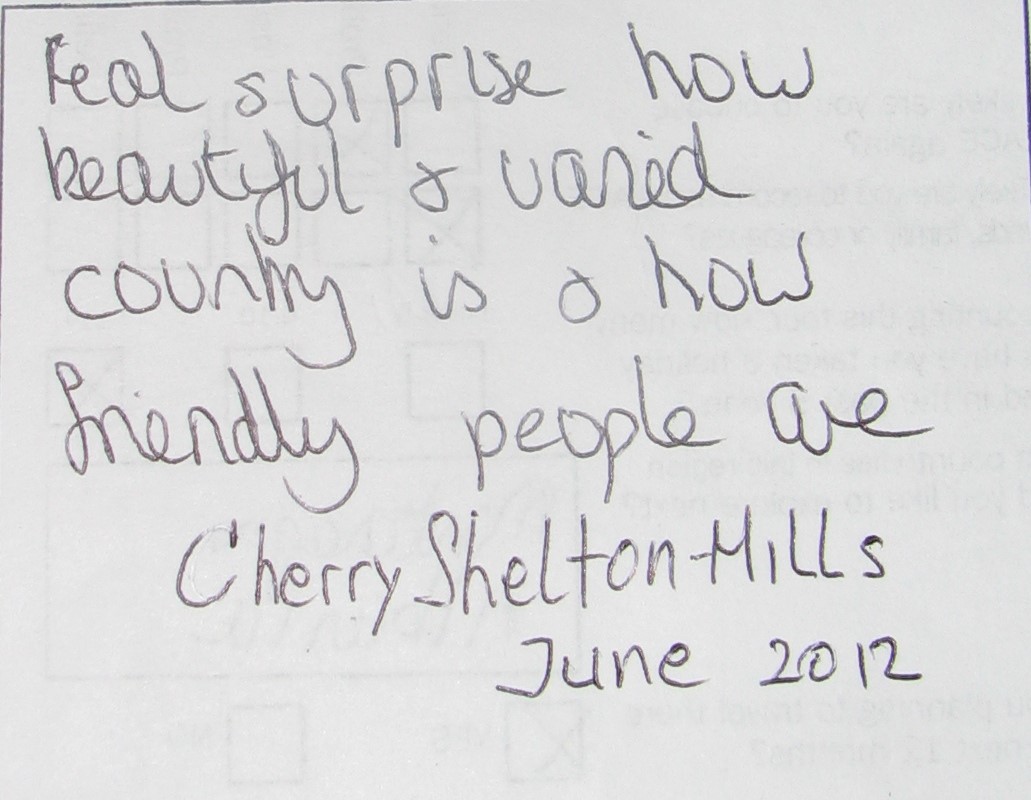 Real surprise how
beautiful & varied
country is & how
friendly people are
Cherry Shelton-Mills
June 2012